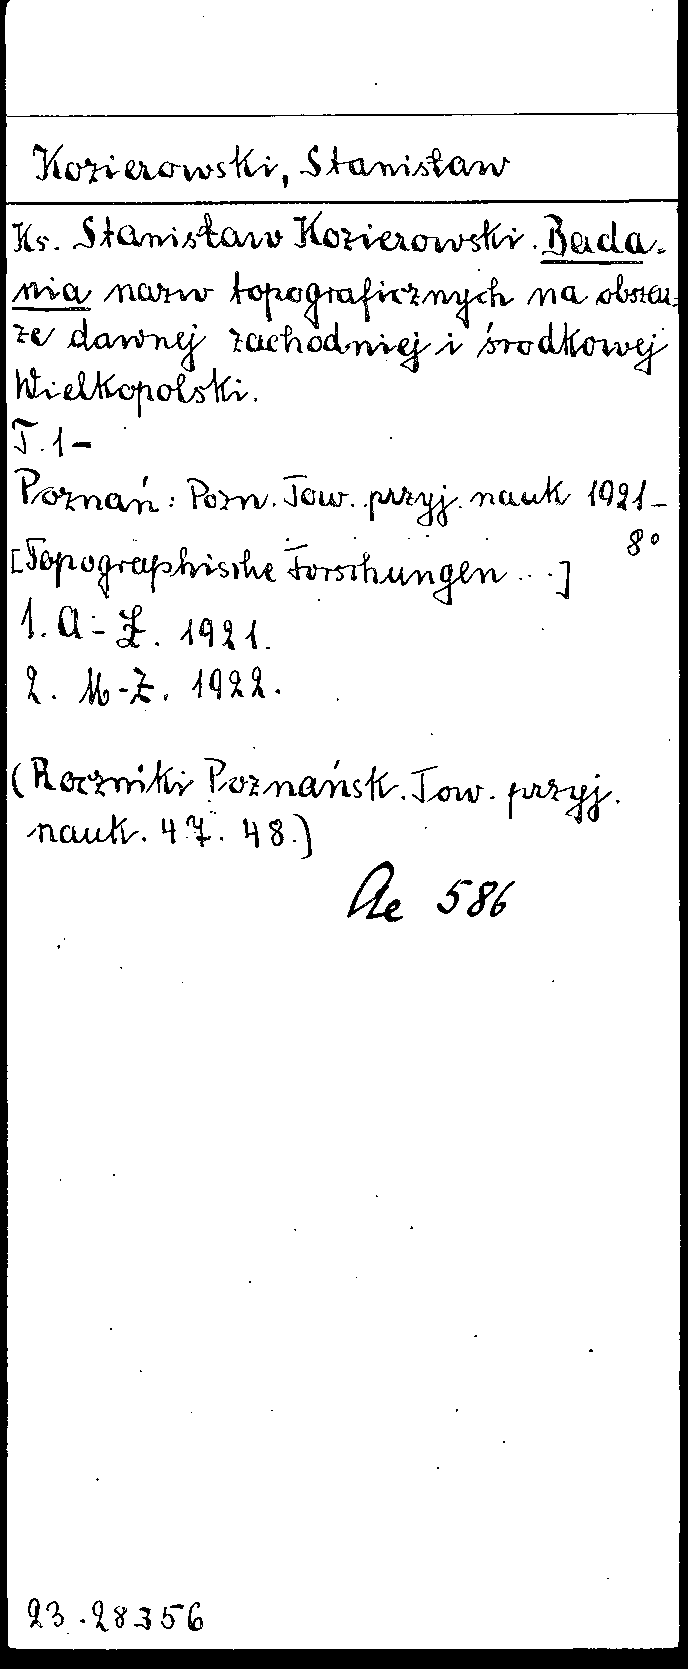 Kozierowski, Stanisław
Ks. Stanisław Kozierowski. Bada-
nia nazw topograficznych na obsza-
rze dawnej zachodniej i środkowej
Wielkopolski.
T. 1-
Poznań: Pozn. Tow. przyj. nauk 1921-
8°
[Topographische Forschungen ...]
1. A-Ł. 1921.
2. M-Z. 1922.
(Roczniki Poznańsk. Tow. przyj.
nauk. 47. 48.)
Ae 586
23.28356